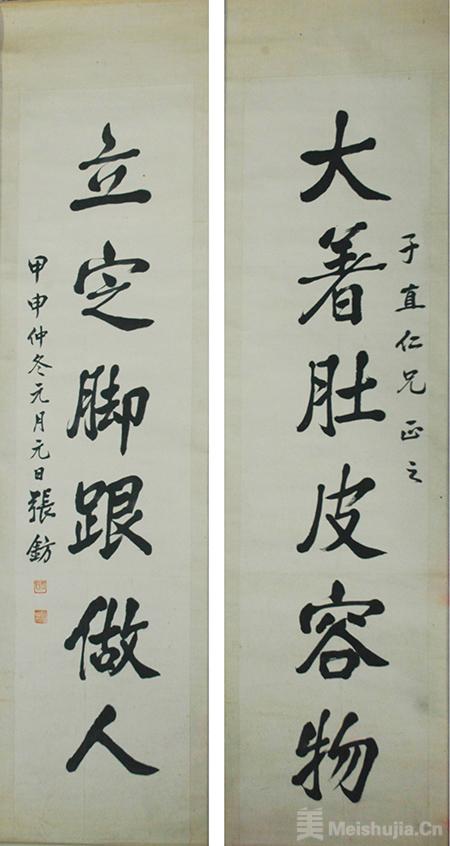 大着肚皮容物
于直仁兄正之
立定脚跟做人
甲申仲冬元月元日張鈁
美 Meishujia.Cn